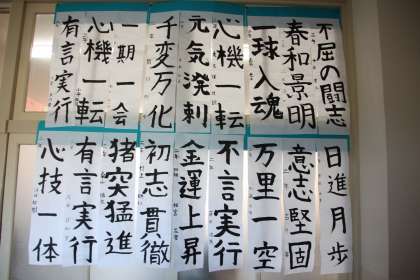 不屈の闘志
春和景明
一球入魂
心機一転
元気溌剌
千変万化
一期一会
心機一転
有言実行
日進月歩
意志堅固
万里一空
不言実行
金運上昇
初志貫徹
猪突猛進
有言実行
心技一体